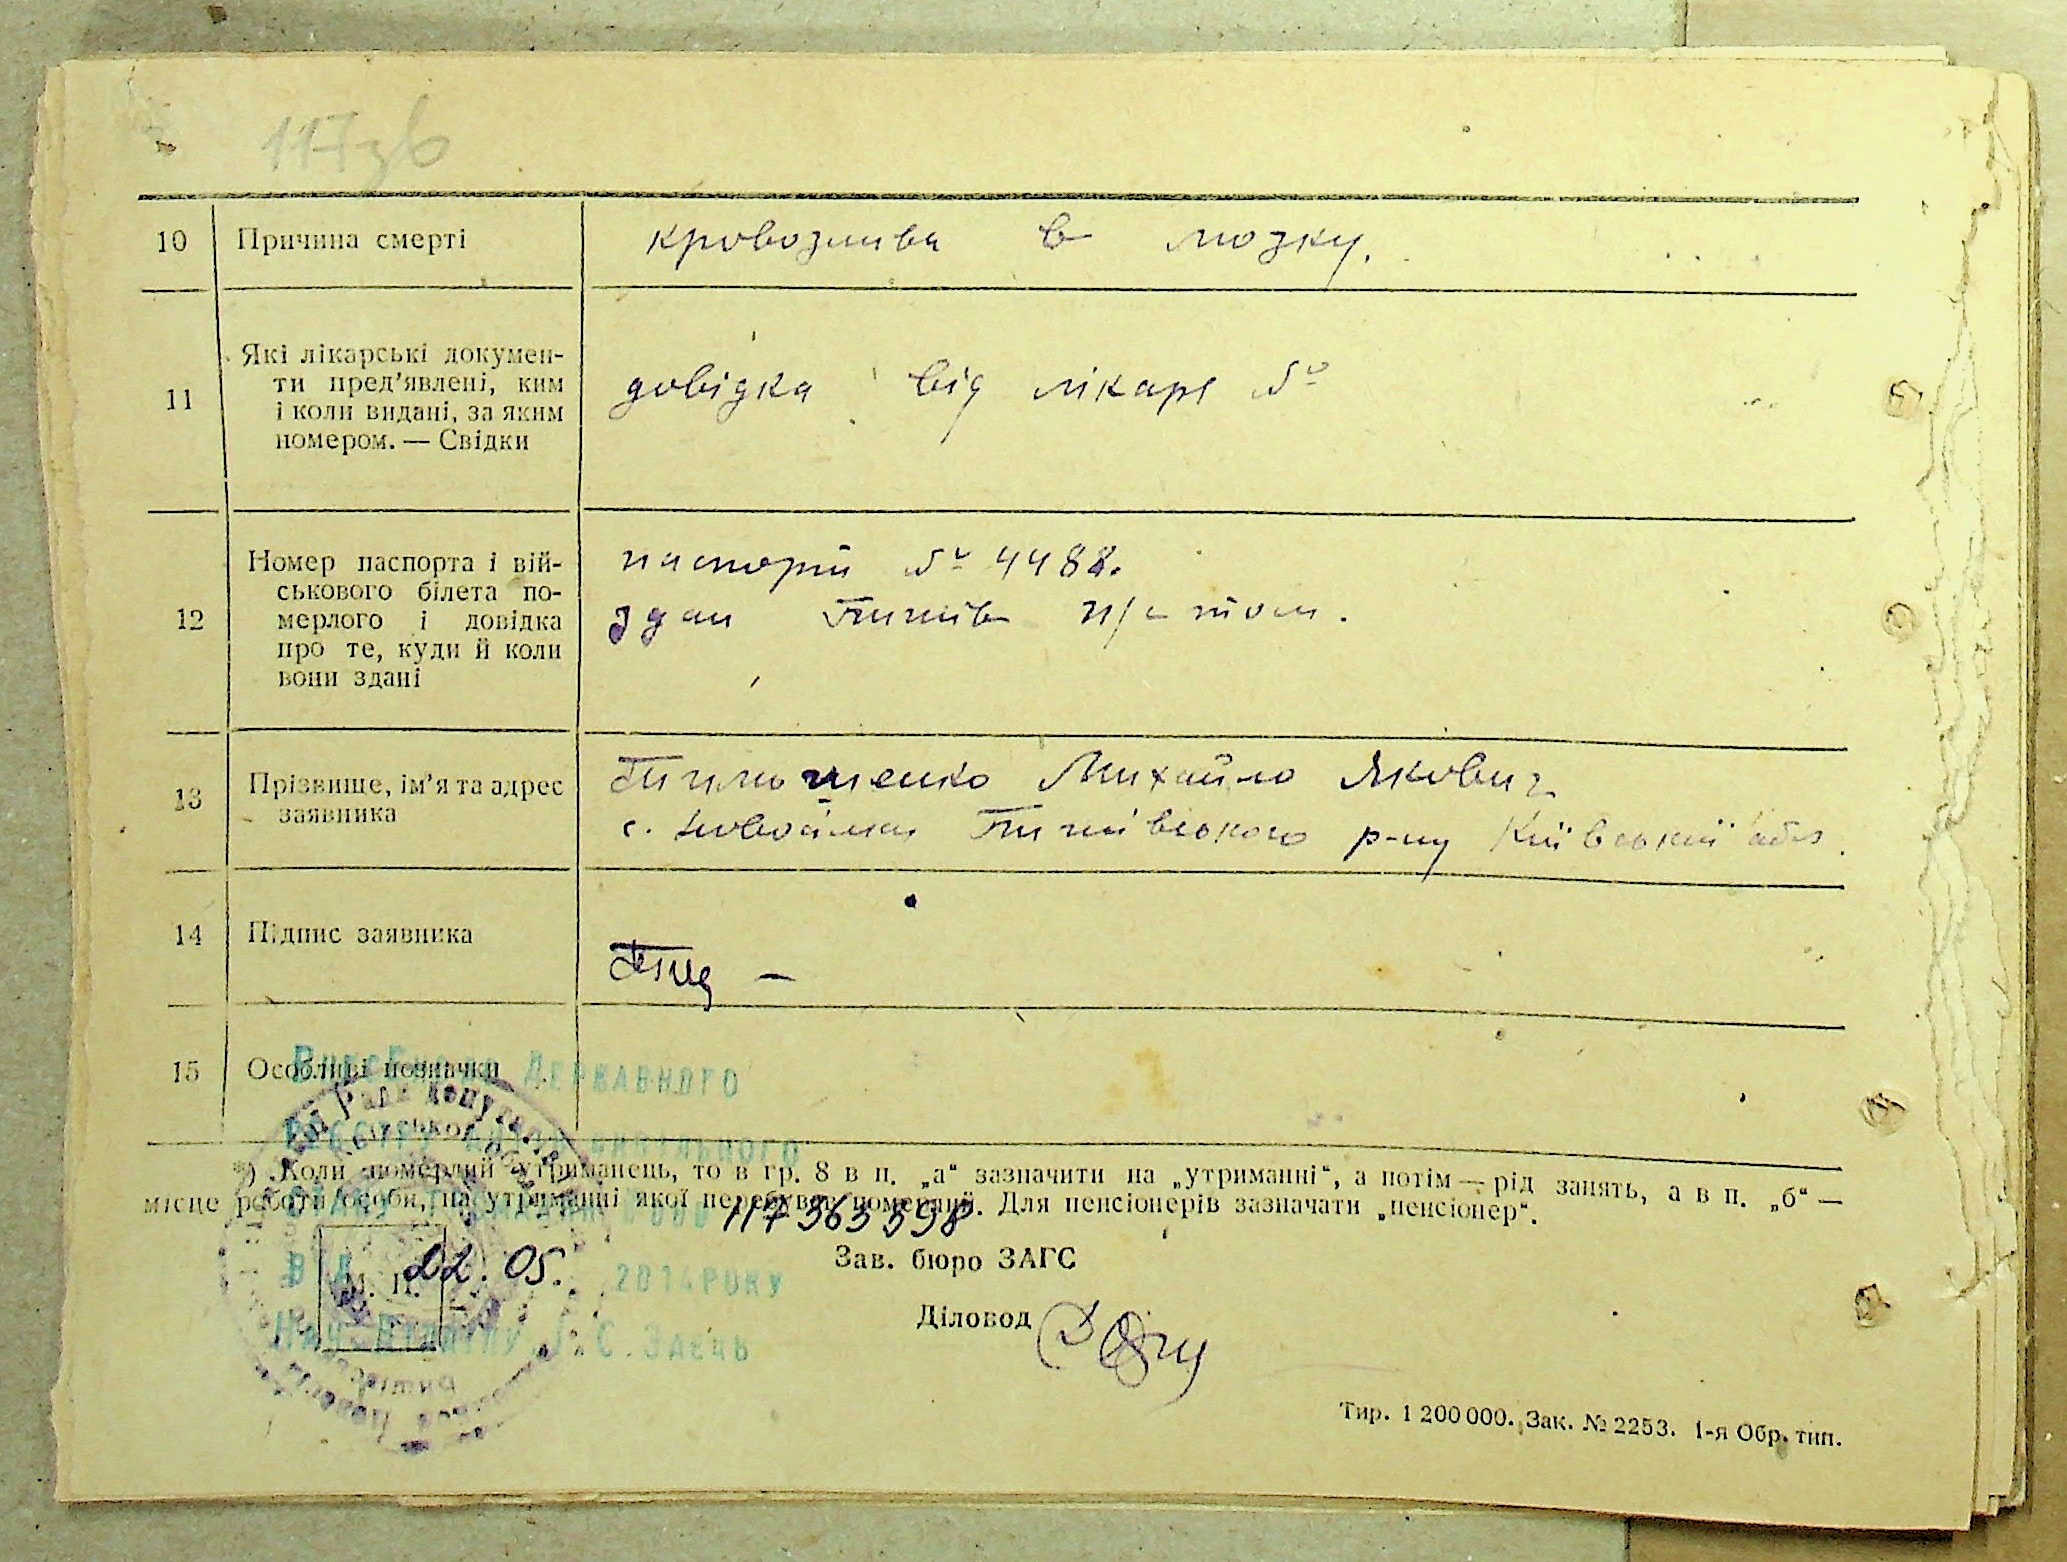 117зв
10 Причина смерті кровозлива в мозку.
11 Які лікарські докумен-
ти пред'явлені, ким
і коли видані, за яким
номером. — Свідки
довідка від лікаря №
12 Номер паспорта і вій-
ськового білета по-
мерлого і довідка
про те, куди й коли
вони здані
паспорт № 4488.
здан
13 Прізвище, ім'я та адрес
заявника
Тимошенко Михайло Якович
с. р-ну Київський обл.
14 Підпис заявника
15 Особливі позначки
Державного
*) Коли померлий утриманець, то в гр. 8 в п. „а“ зазначити на „утриманні“, а потім — рід занять, а в п. „б“ —
місце роботи особи, на утриманні якої перебував померлий. Для пенсіонерів зазначати „пенсіонер“.
Зав. бюро ЗАГС
22.05. 2014 року
М. П.
Діловод
Нач. Відділу С. Заєць
Тир. 1 200 000. Зак. № 2253. 1-я Обр. тип.